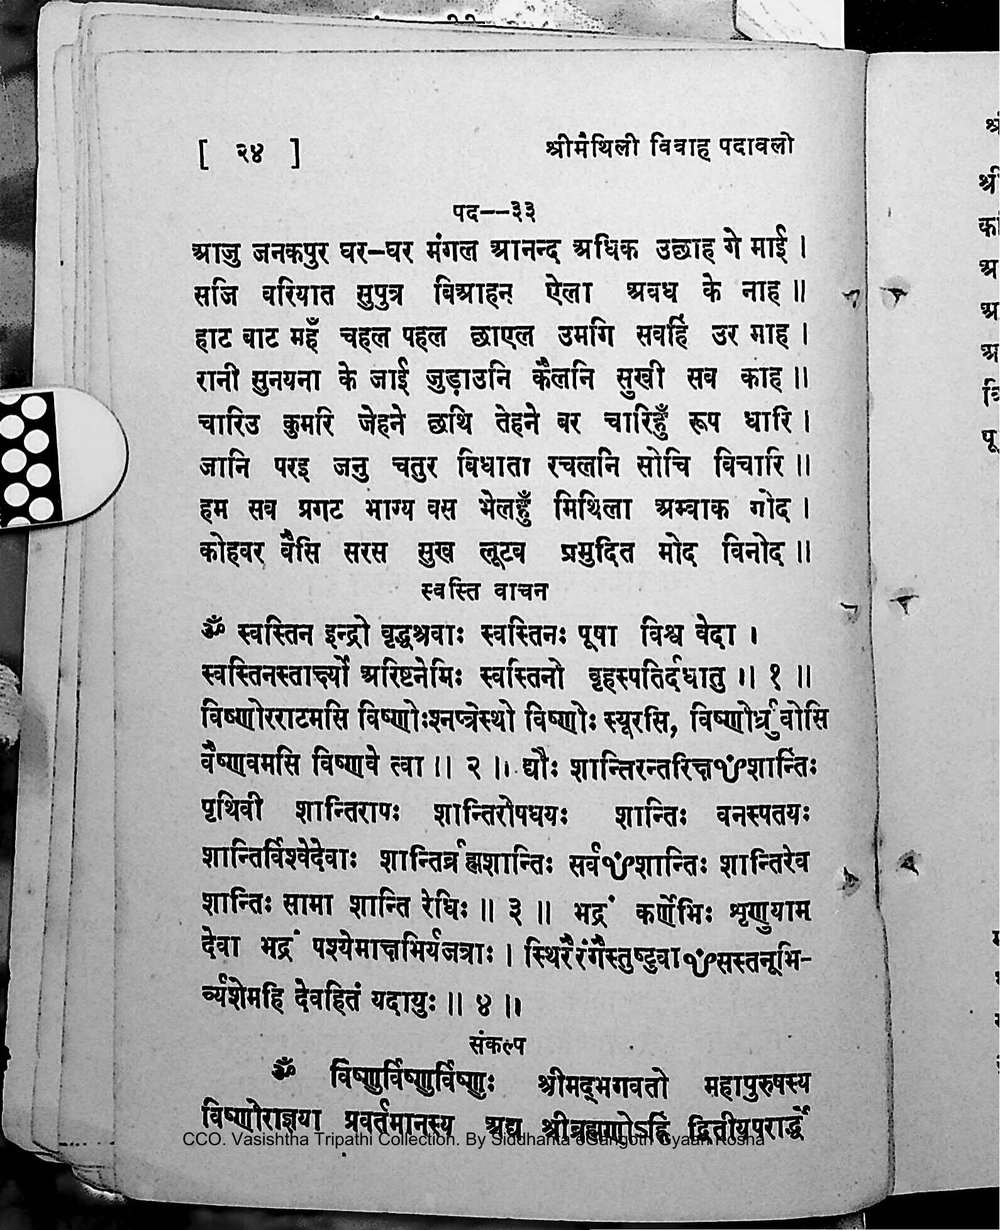 [ २४ ] श्रीमैथिली विवाह पदावली
पद--३३
आजु जनकपुर घर-घर मंगल आनन्द अधिक उछाह गे माई ।
सजि बरियात सुपुत्र बिआहन ऐला अवध के नाह ॥
हाट बाट महँ चहल पहल छाएल उमगि सवहिं उर माह ।
रानी सुनयना के जाई जुड़ाउनि कैलनि सुखी सव काह ॥
चारिउ कुमरि जेहने छथि तेहने बर चारिहुँ रूप धारि ।
जानि परइ जनु चतुर बिधाता रचलनि सोचि विचारि ॥
हम सव प्रगट भाग्य वस भेलहुँ मिथिला अम्वाक गोद ।
कोहवर वैसि सरस सुख लूटब प्रमुदित मोद विनोद ॥
स्वस्ति वाचन
ॐ स्वस्तिन इन्द्रो वृद्धश्रवाः स्वस्तिनः पूषा विश्व वेदा ।
स्वस्तिनस्तार्क्ष्यो अरिष्टनेमिः स्वस्तिनो वृहस्पतिर्दधातु ॥ १ ॥
विष्णोरराटमसि विष्णोःश्नप्त्रेस्थो विष्णोः स्यूरसि, विष्णोर्ध्रुवोसि
वैष्णवमसि विष्णवे त्वा ॥ २ ॥ द्यौः शान्तिरन्तरिक्षꣳशान्तिः
पृथिवी शान्तिरापः शान्तिरोषधयः शान्तिः वनस्पतयः
शान्तिर्विश्वेदेवाः शान्तिर्ब्रह्मशान्तिः सर्वꣳशान्तिः शान्तिरेव
शान्तिः सामा शान्ति रेधिः ॥ ३ ॥ भद्रं कर्णेभिः शृणुयाम
देवा भद्रं पश्येमाक्षभिर्यजत्राः । स्थिरैरंगैस्तुष्टुवाꣳसस्तनूभि-
र्व्यशेमहि देवहितं यदायुः ॥ ४ ॥
संकल्प
ॐ विष्णुर्विष्णुर्विष्णुः श्रीमद्भगवतो महापुरुषस्य
विष्णोराज्ञया प्रवर्तमानस्य अद्य श्रीब्रह्मणोऽह्नि द्वितीयपरार्द्धे
CCO. Vasishtha Tripathi Collection. By Siddhanta eGangotri Gyaan Kosha